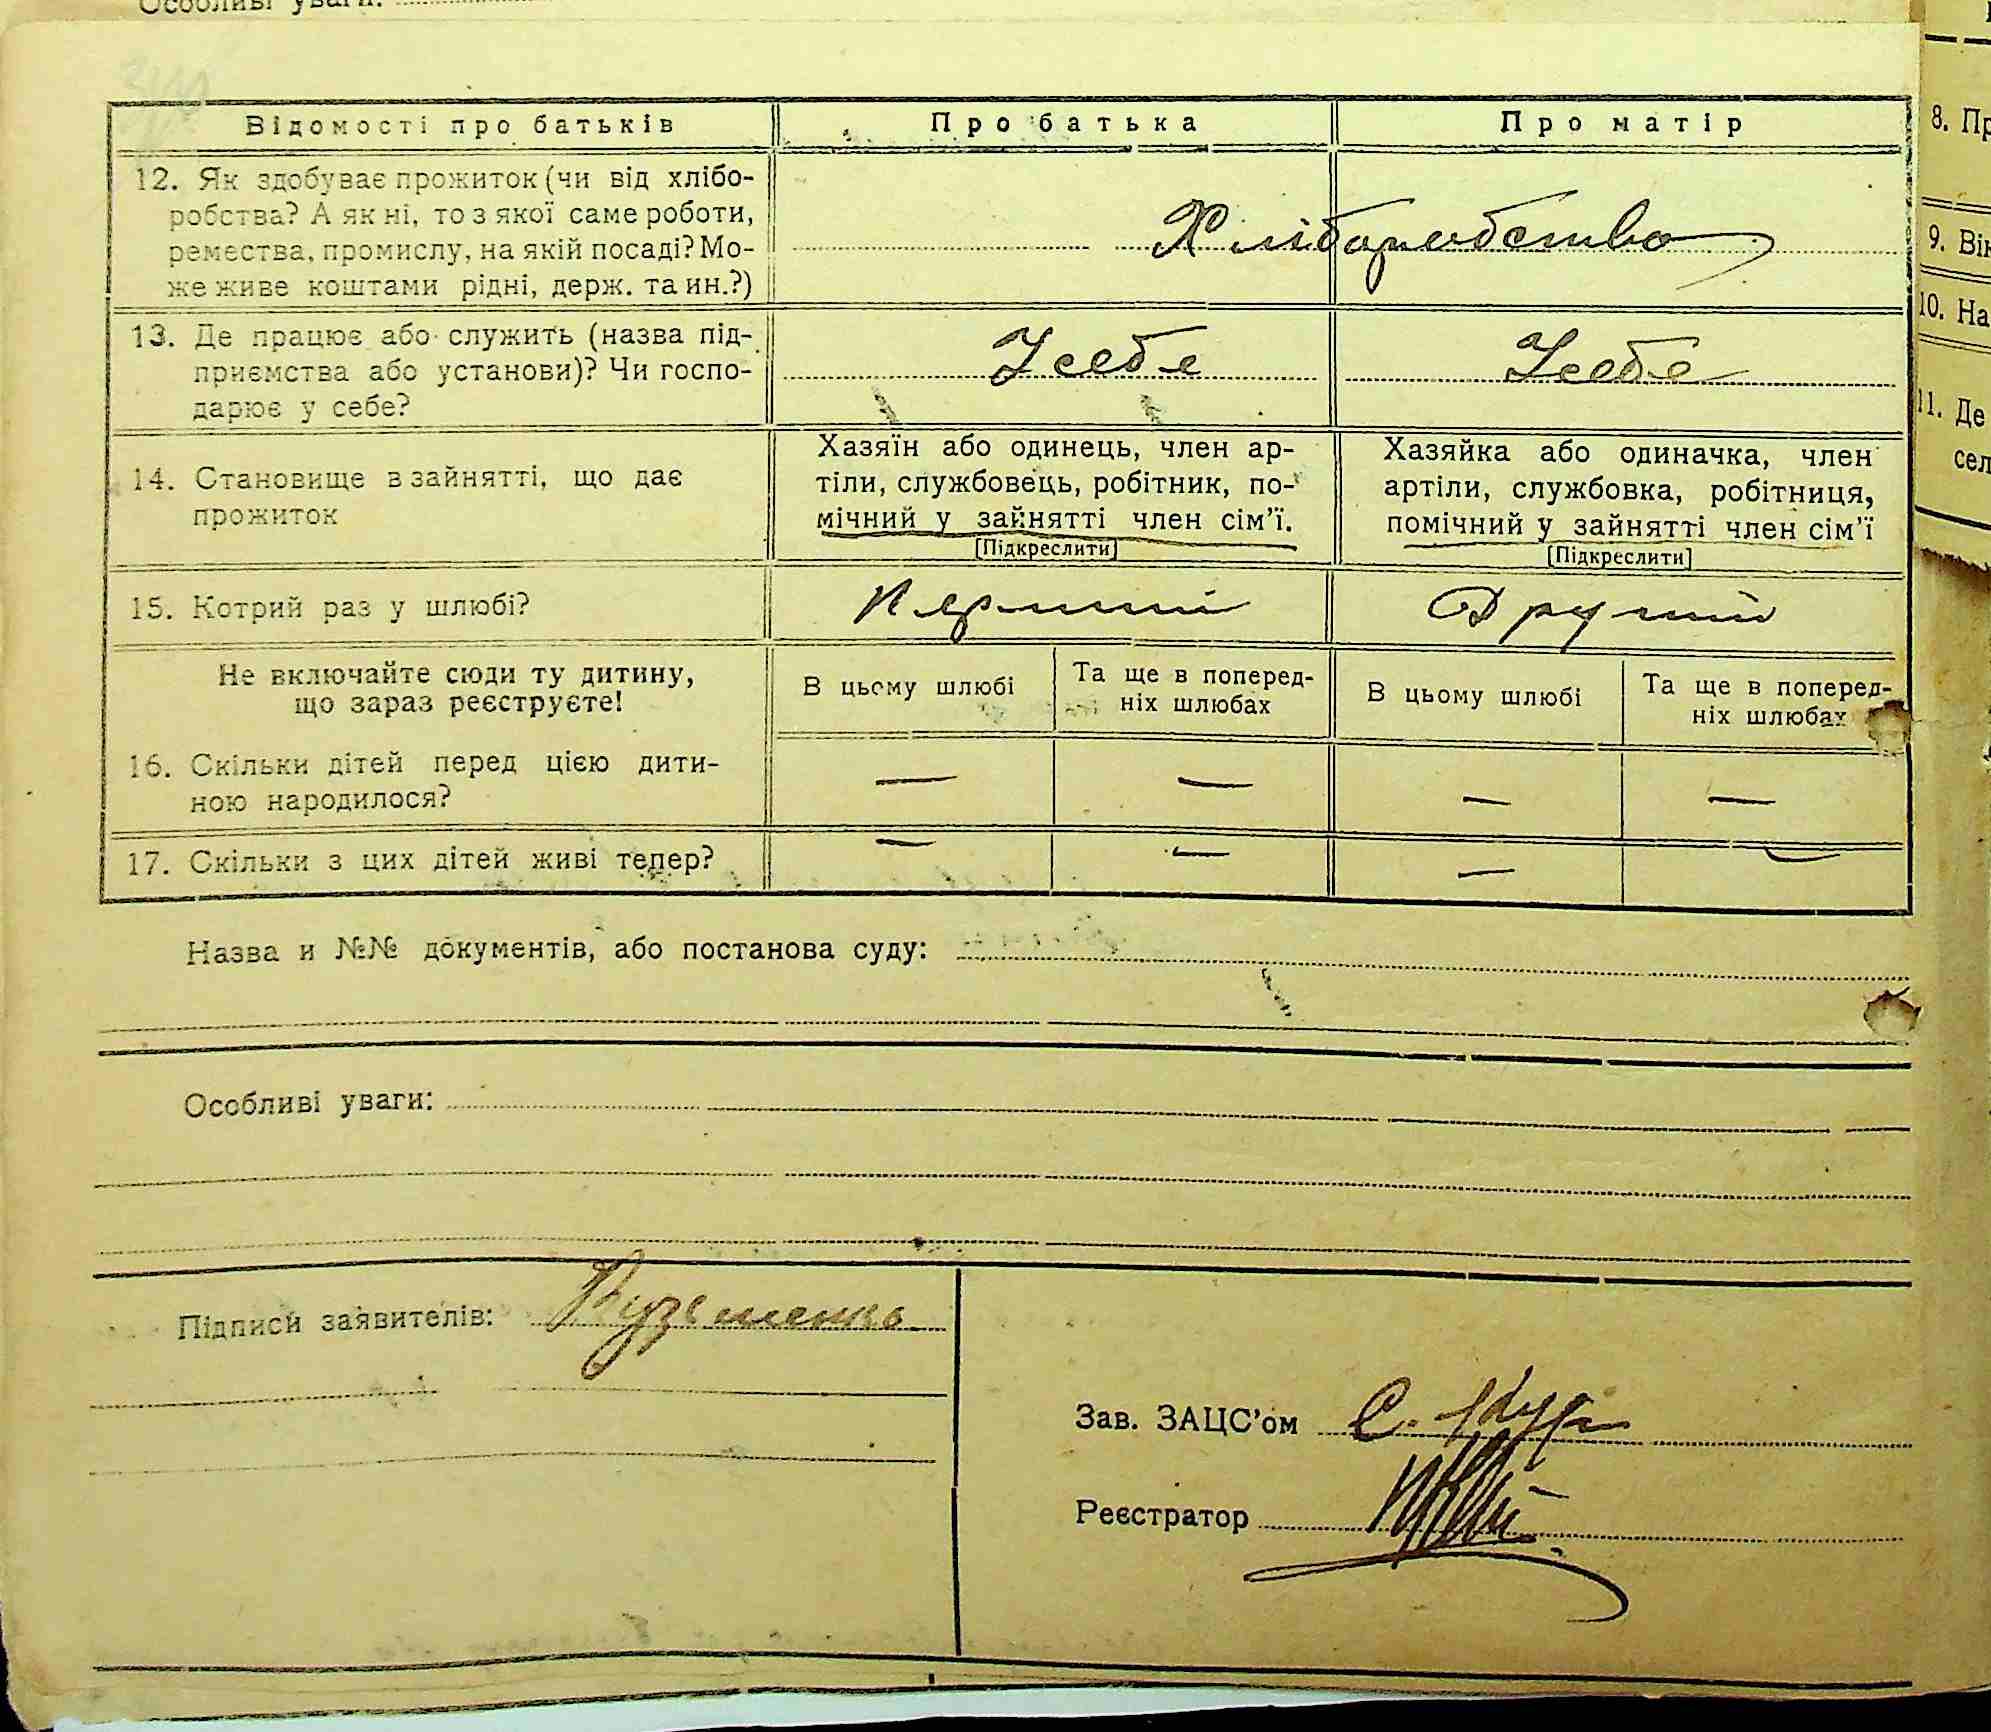 Особливі уваги:
Відомості про батьків Про батька Про матір
12. Як здобуває прожиток (чи від хлібо-
робства? А як ні, то з якої саме роботи,
ремества, промислу, на якій посаді? Мо-
же живе коштами рідні, держ. та ин.?)
Хліборобство
13. Де працює або служить (назва під-
приємства або установи)? Чи госпо-
дарює у себе?
У себе У себе
14. Становище в зайнятті, що дає
прожиток
Хазяїн або одинець, член ар-
тіли, службовець, робітник, по-
мічний у зайнятті член сім'ї.
[Підкреслити]
Хазяйка або одиначка, член
артіли, службовка, робітниця,
помічний у зайнятті член сім'ї
[Підкреслити]
15. Котрий раз у шлюбі? Перший Другий
Не включайте сюди ту дитину,
що зараз реєструєте!
В цьому шлюбі
Та ще в поперед-
ніх шлюбах
В цьому шлюбі
Та ще в поперед-
ніх шлюбах
16. Скільки дітей перед цією дити-
ною народилося?
— — — —
17. Скільки з цих дітей живі тепер?
— — — —
Назва и №№ документів, або постанова суду:
Особливі уваги:
Підписи заявителів: Кузьменко
Зав. ЗАЦС'ом С.
Реєстратор
8. Пр
9. Вік
10. На
11. Де
сел